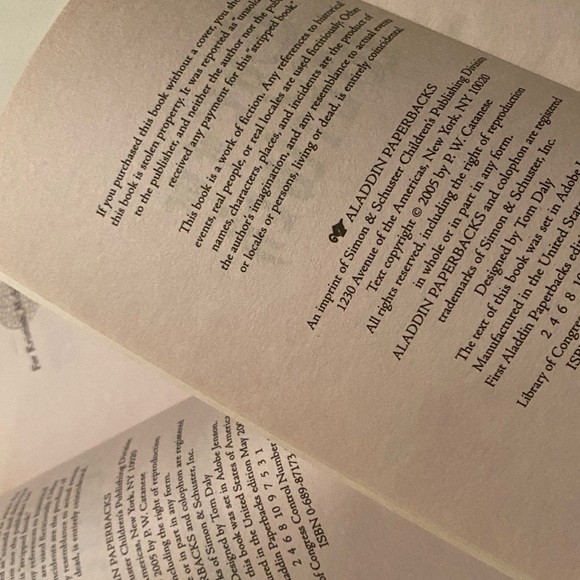 If you purchased this book without a cover, you
this book is stolen property. It was reported as "unsold
to the publisher, and neither the author nor the
received any payment for this "stripped book"
This book is a work of fiction. Any references to historical
events, real people, or real locales are used fictitiously. Other
names, characters, places, and incidents are the product of
the author's imagination, and any resemblance to actual events
or locales or persons, living or dead, is entirely coincidental.
ALADDIN PAPERBACKS
An imprint of Simon & Schuster Children's Publishing Division
1230 Avenue of the Americas, New York, NY 10020
Text copyright © 2005 by P. W. Catanese
All rights reserved, including the right of reproduction
in whole or in part in any form.
ALADDIN PAPERBACKS and colophon are registered
trademarks of Simon & Schuster, Inc.
Designed by Tom Daly
The text of this book was set in Adobe
Manufactured in the United
First Aladdin Paperbacks
2 4 6 8
Library of
ISBN
PAPERBACKS
Children's Publishing Division
Americas, New York, NY 10020
2005 by P. W. Catanese
the right of reproduction
in part in any form.
and colophon are registered
& Schuster, Inc.
Tom Daly
was set in Adobe Jenson.
the United States of America
Paperbacks edition May
2 4 6 8 10 9 7 5 3 1
of Congress Control Number
ISBN 0-689-87173